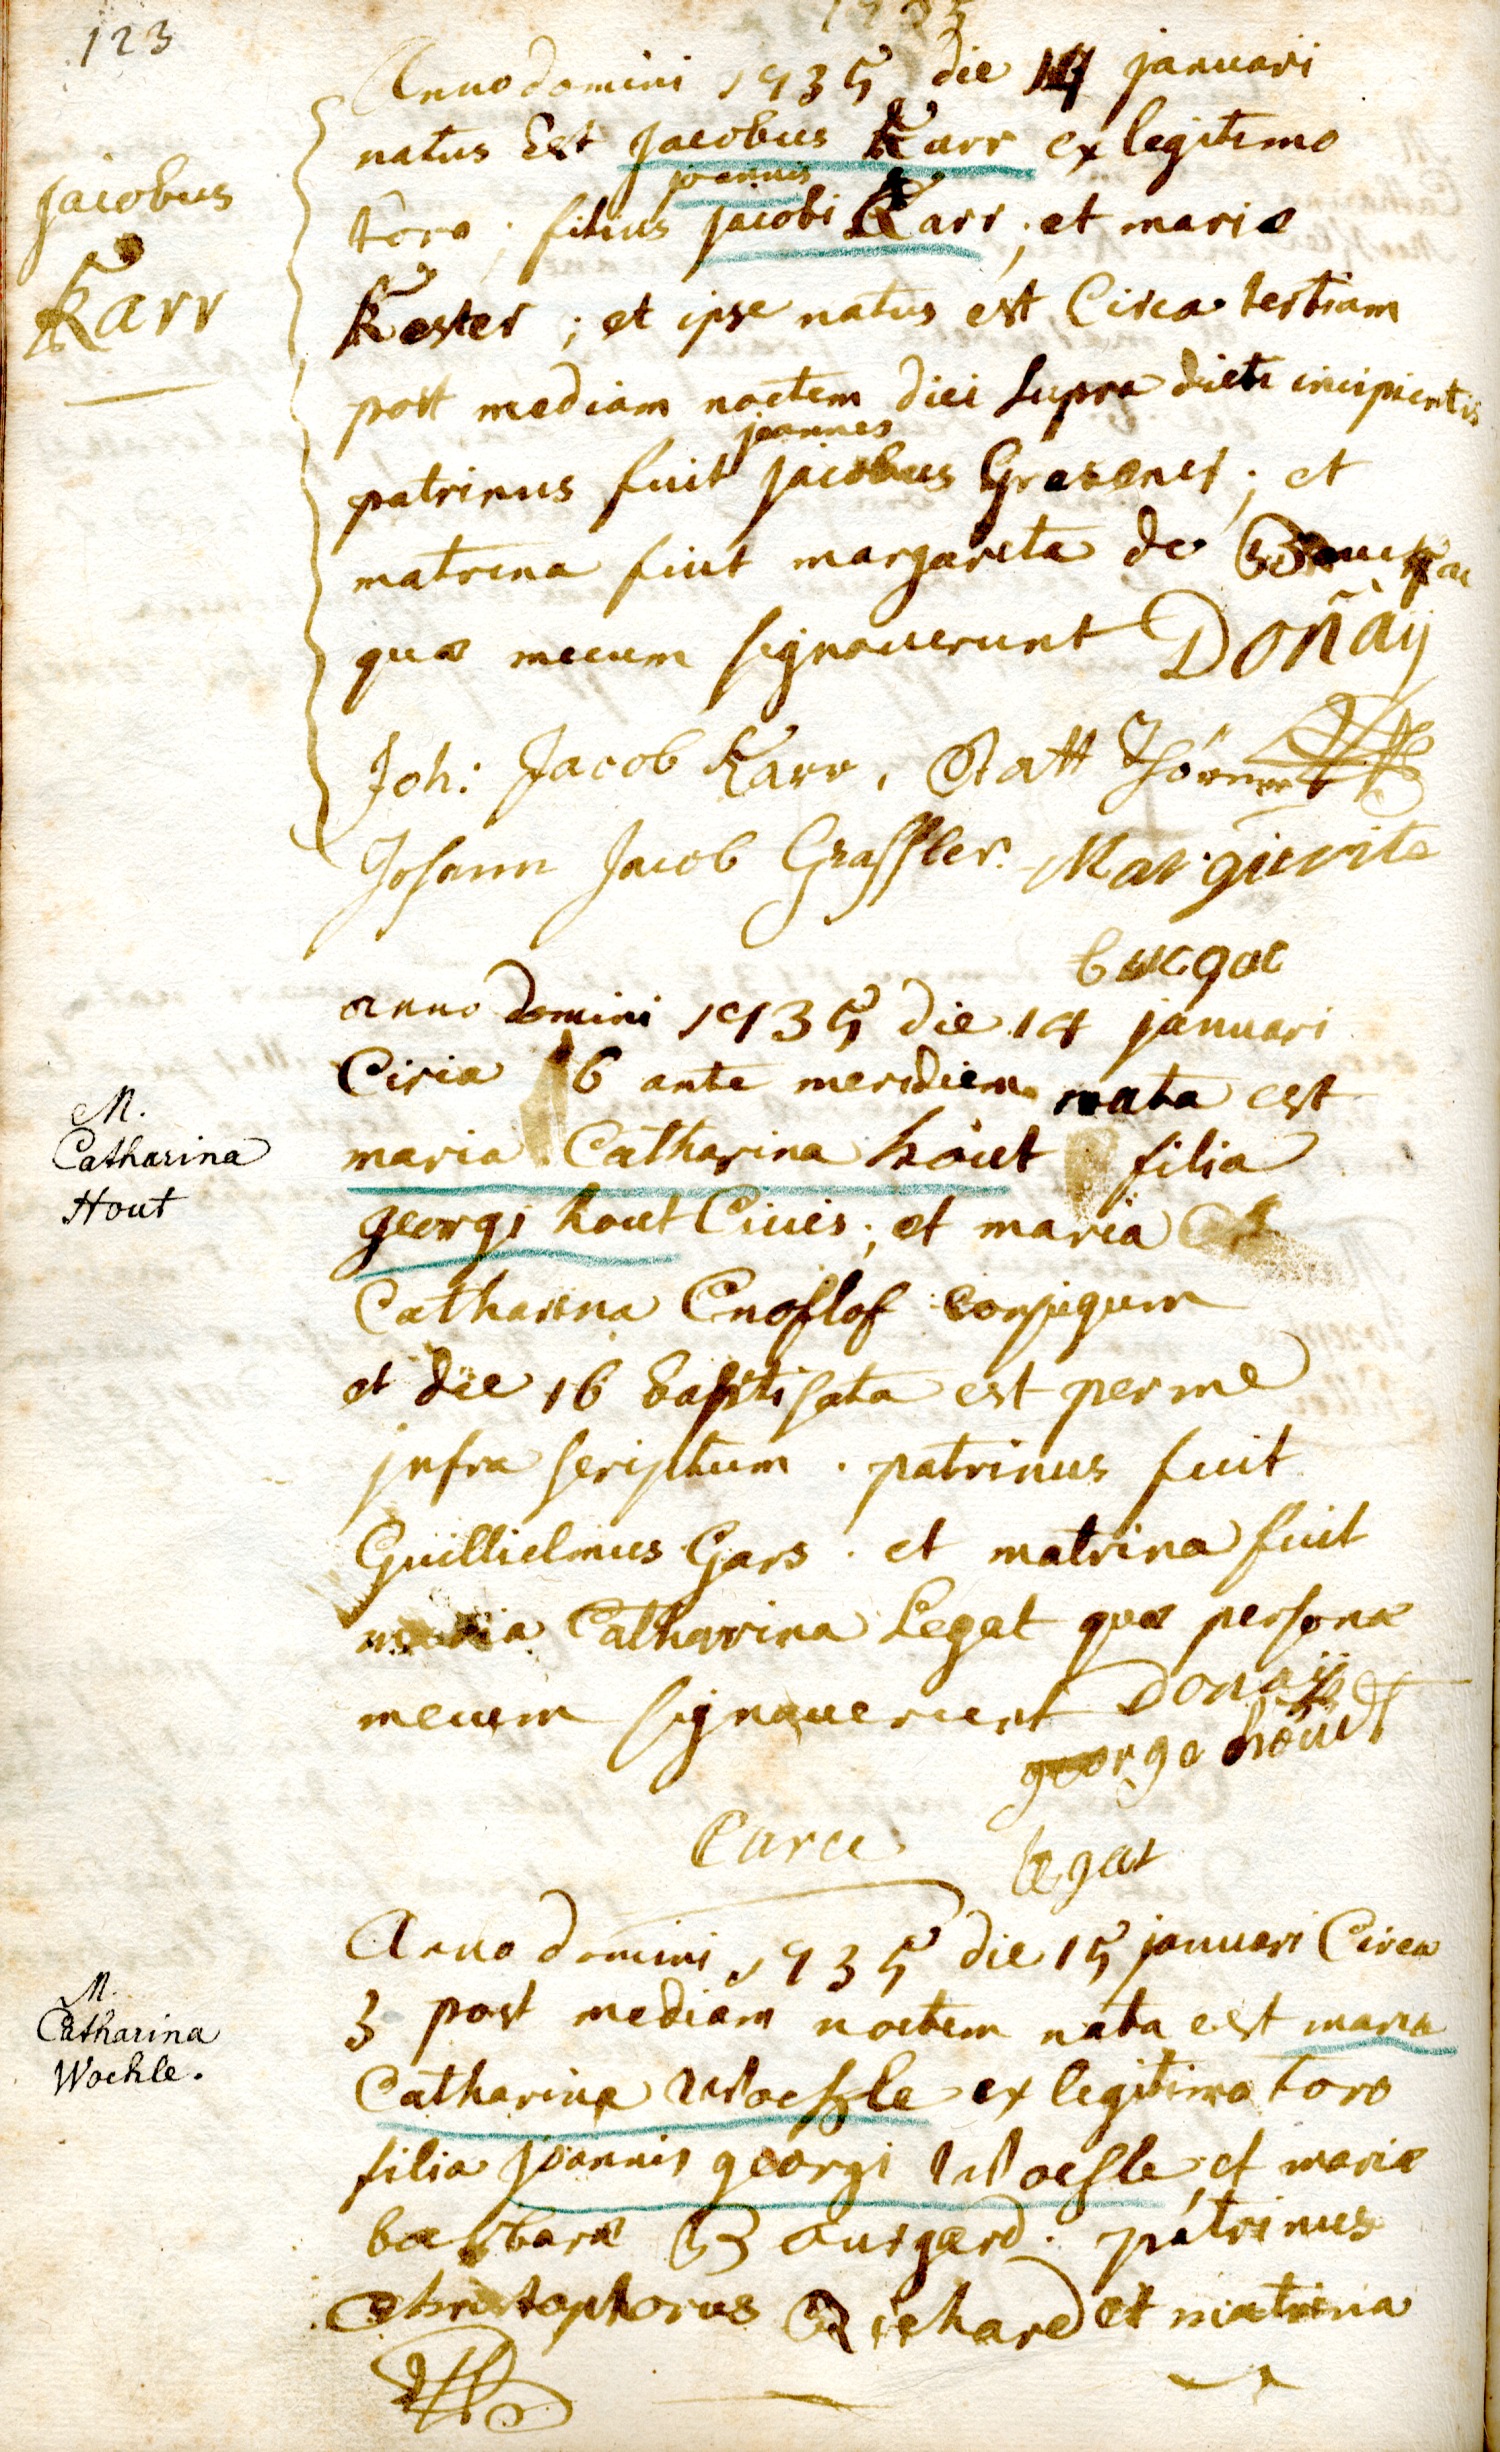 123
1735
Anno domini 1735 die 14 januari
natus Est jacobus Karr ex legitimo
joannis
toro ; filius jacobi Karr ; et mariæ
Kester ; et ipse natus est Circa tertiam
post mediam noctem diei supra dicti incipientis
joannes
patrinus fuit jacobus Gresener ; et
matrina fuit margareta de
quæ mecum signaverunt Donaÿ
Joh: Jacob Karr, Statt
Johann Jacob Graffler. Marguerite
bucque
jacobus
Karr
anno domini 1735 die 14 januari
Circa 6 ante meridiem nata est
maria Catharina hout filia
georgi hout Civis ; et maria
Catharina Cnoflof conjugum
et die 16 baptisata est per me
jnfra scriptum . patrinus fuit
Guillielmus Gars . et matrina fuit
maria Catharina Legat quæ personæ
mecum signaverunt Donaÿ
george hout
Carce legat
M.
Catharina
Hout
Anno domini 1735 die 15 januari Circa
3 post mediam noctem nata est maria
Catharina Woehle ex legitimo toro
filia joannis georgi Woehle et mariæ
barbaræ Bourgard . patrinus
Christophorus Richard et matrina
M.
Catharina
Woehle.